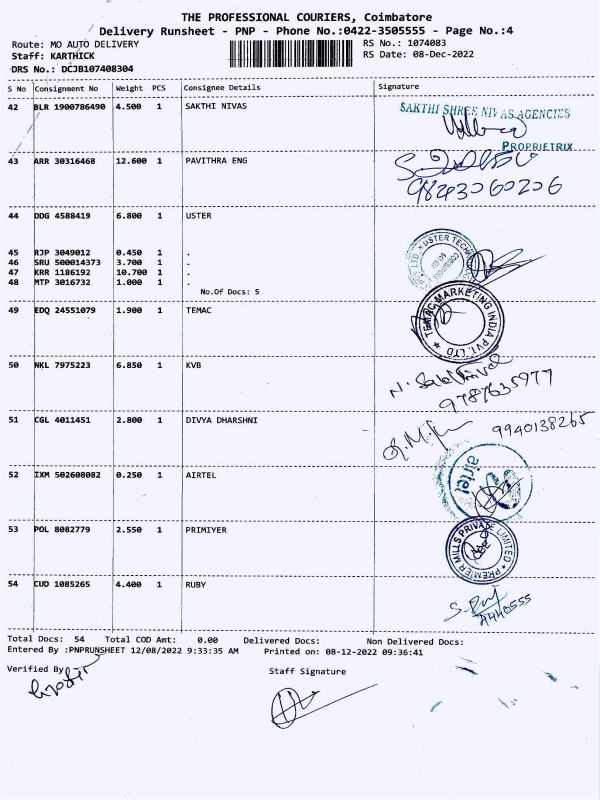 THE PROFESSIONAL COURIERS, Coimbatore
Delivery Runsheet - PNP - Phone No.:0422-3505555 - Page No.:4
Route: MO AUTO DELIVERY RS No.: 1074083
Staff: KARTHICK RS Date: 08-Dec-2022
DRS No.: DCJB107408304
S No Consignment No Weight PCS Consignee Details Signature
42 BLR 1900786490 4.500 1 SAKTHI NIVAS
SAKTHI SHREE NIVAS AGENCIES
PROPRIETRIX
43 ARR 30316468 12.600 1 PAVITHRA ENG
9843060206
44 DDG 4588419 6.800 1 USTER
45 RJP 3049012 0.450 1 .
46 SRU 500014373 3.700 1 .
47 KRR 1186192 10.700 1 .
48 MTP 3016732 1.000 1 .
No.Of Docs: 5
USTER
49 EDQ 24551079 1.900 1 TEMAC
TEMAC MARKETING INDIA PVT. LTD
50 NKL 7975223 6.850 1 KVB
9787635977
51 CGL 4011451 2.800 1 DIVYA DHARSHNI
9940138265
52 IXM 502608082 0.250 1 AIRTEL
airtel
53 POL 8082779 2.550 1 PRIMIYER
PREMIER MILLS PRIVATE LIMITED
54 CUD 1085265 4.400 1 RUBY
Total Docs: 54 Total COD Amt: 0.00 Delivered Docs: Non Delivered Docs:
Entered By :PNPRUNSHEET 12/08/2022 9:33:35 AM Printed on: 08-12-2022 09:36:41
Verified By Staff Signature